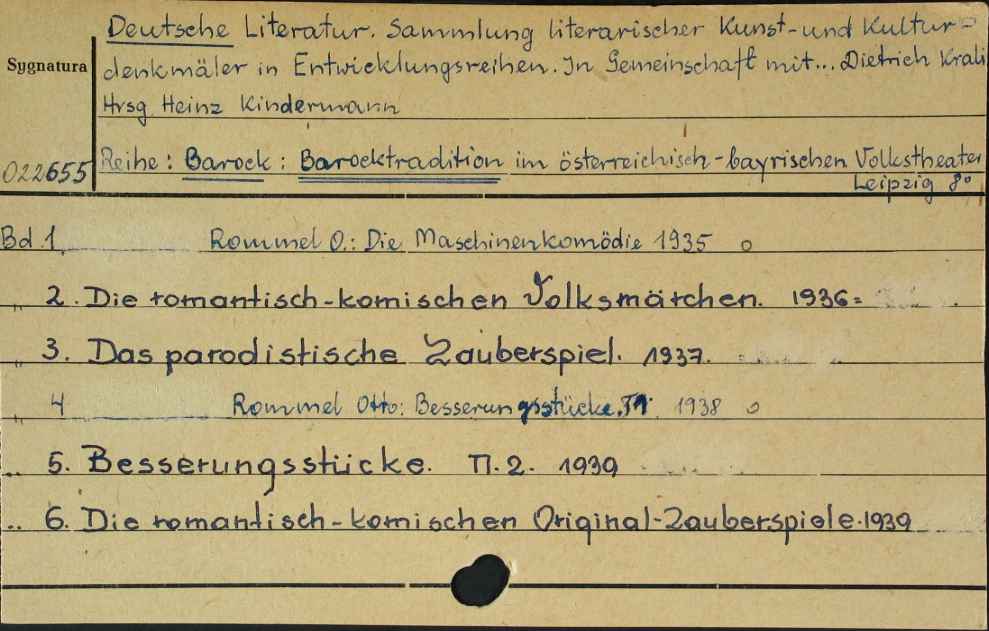 Deutsche Literatur. Sammlung literarischer Kunst- und Kultur-
Sygnatura
denkmäler in Entwicklungsreihen. In Gemeinschaft mit... Dietrich Krali
Hrsg. Heinz Kindermann
022655
Reihe: Barock: Barocktradition im österreichisch-bayrischen Volkstheater
Leipzig 8°
Bd 1 Rommel O.: Die Maschinenkomödie 1935 o
„ 2. Die romantisch-komischen Volksmärchen. 1936.
„ 3. Das parodistische Zauberspiel. 1937.
„ 4 Rommel Otto: Besserungsstücke. T1. 1938 o
„ 5. Besserungsstücke. T1. 2. 1939
„ 6. Die romantisch-komischen Original-Zauberspiele. 1939